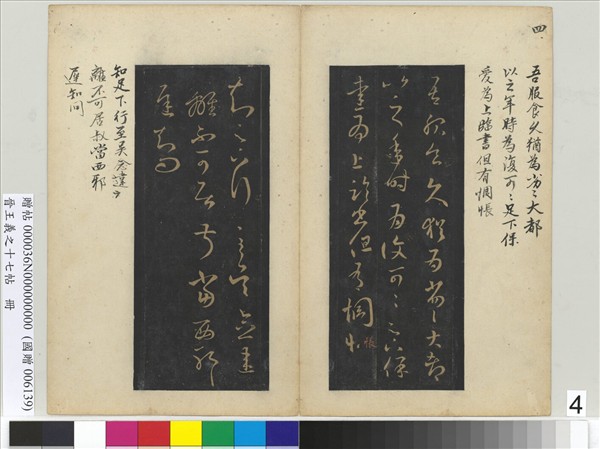 四
吾服食久猶為劣〻大都
以之年時為復可〻足下保
愛為上臨書但有惆悵
吾服食久猶為劣〻大都
以之年時為復可〻足下保
愛為上臨書但有惆悵
知足下行至吳念違
離不可居叔當西耶
遲知問
知足下行至吳念違
離不可居叔當西邪
遲知問
贈帖 000036N000000000 (國贈 006139)
晉王羲之十七帖 冊
4